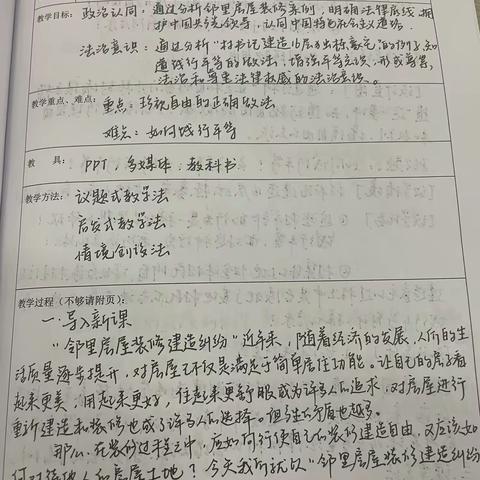 教学目标: 政治认同：通过分析邻里房屋装修案例，明确法律底线 拥
护中国共产党领导，认同中国特色社会主义道路.
法治意识：通过分析“村书记建造
道践行平等的做法，增强平等意识，形成尊崇
法治和尊重法律权威的法治意识。
教学重点、难点： 重点：珍视自由的正确做法
难点：如何践行平等
教 具： PPT，多媒体，教科书
教学方法: 议题式教学法
启发式教学法
情境创设法
教学过程(不够请附页):
一. 导入新课
“邻里房屋装修建造纠纷” 近年来，随着经济的发展，人们的生
活质量逐步提升，对房屋不仅仅是满足于简单居住功能。让自己的房子看
起来更美，用起来更好，住起来更舒服成为许多人的追求，对房屋进行
重新建造和装修也成了许多人的选择。但产生矛盾也越多。
那么，在装修过程之中，应如何行使自己的装修建造自由，又应该如
何对待他人和房屋土地？今天我们就以：邻里房屋装修建造纠纷